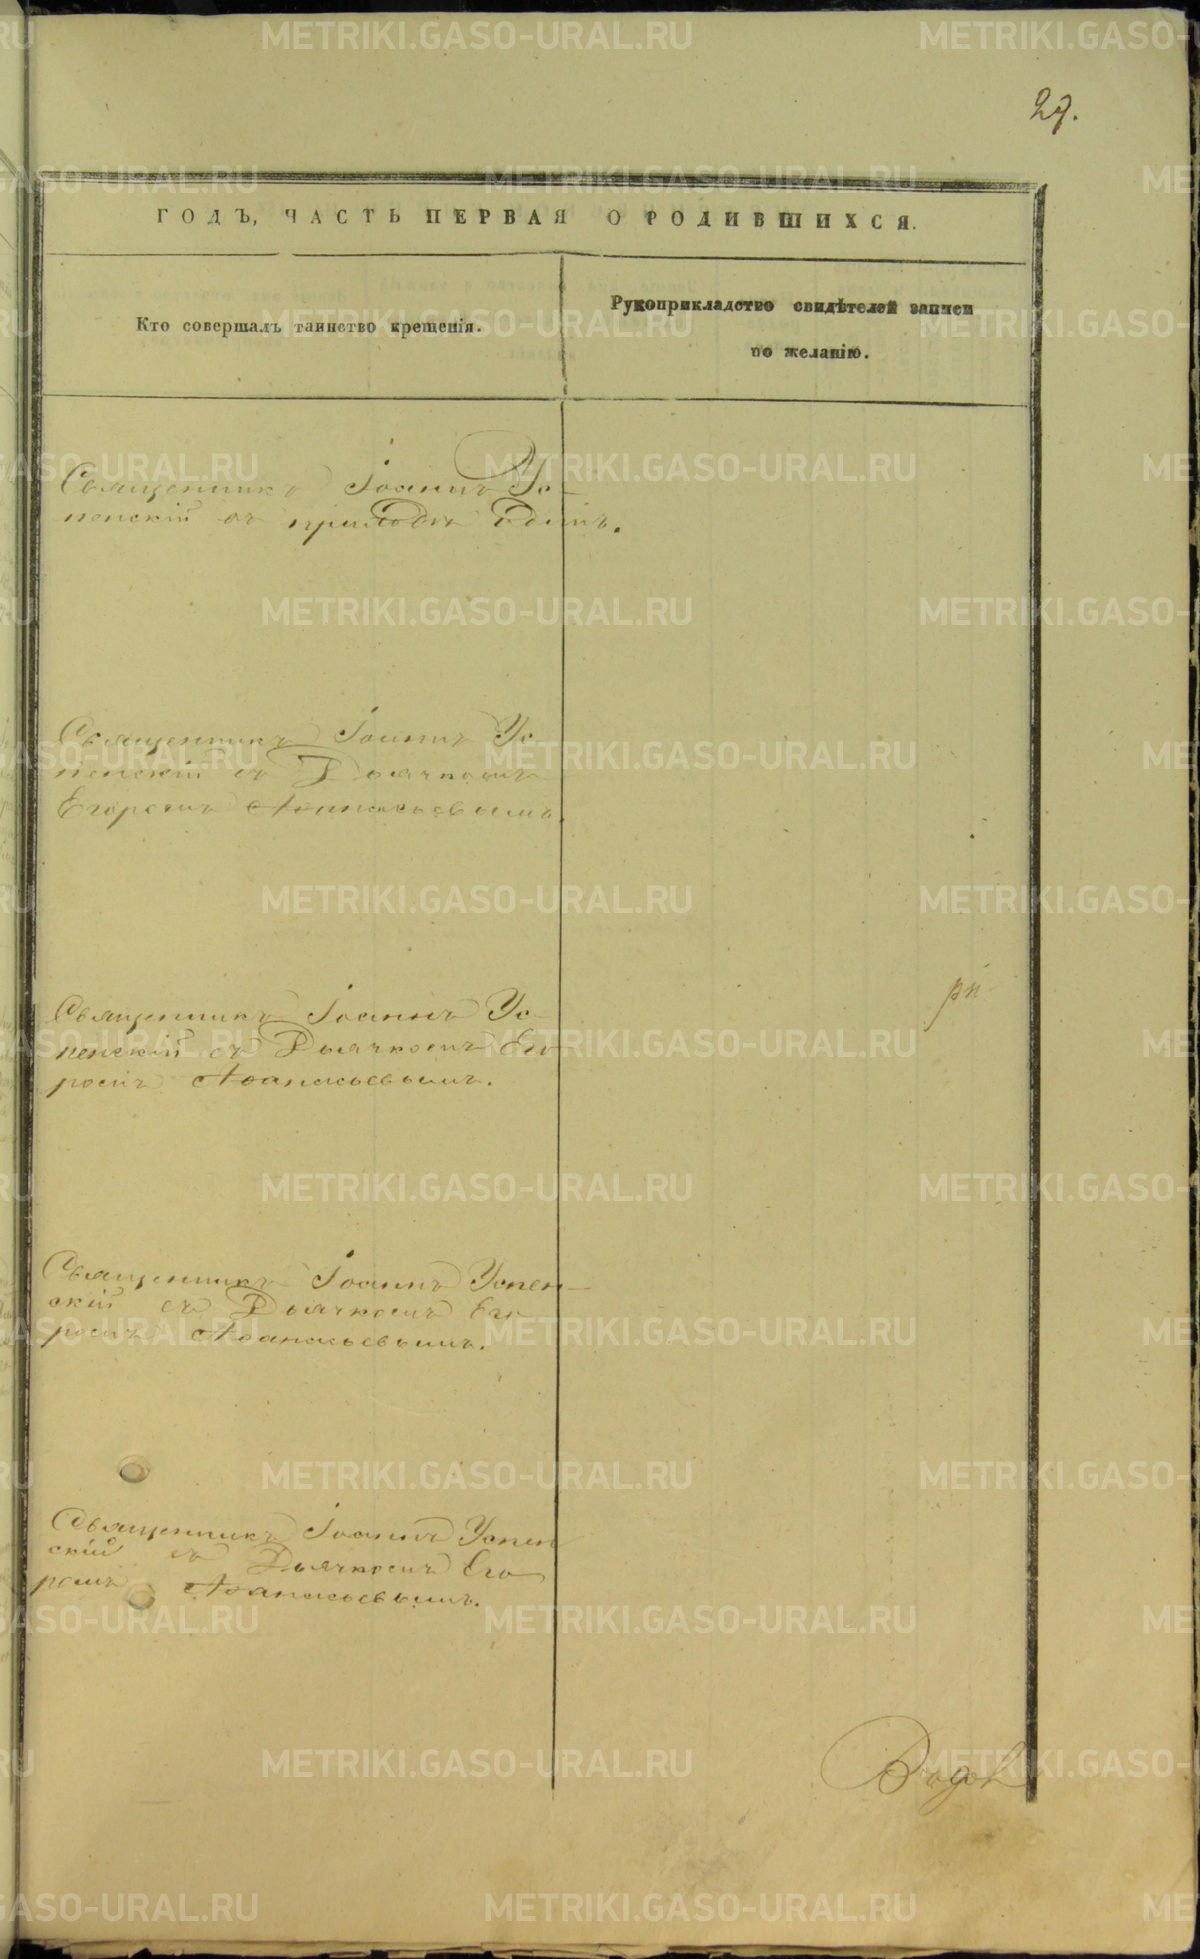 27.
ГОДЪ, ЧАСТЬ ПЕРВАЯ О РОДИВШИХСЯ.
Кто совершалъ таинство крещенія.
Рукоприкладство свидѣтелей записи
по желанію.
Священникъ Іоаннъ Ус-
пенскій въ приходѣ одинъ.
Священникъ Іоаннъ Ус-
пенскій съ Дьячкомъ
Егоромъ Аѳанасьевымъ.
Священникъ Іоаннъ Ус-
пенскій съ Дьячкомъ Его-
ромъ Аѳанасьевымъ.
Священникъ Іоаннъ Успен-
скій съ Дьячкомъ Его-
ромъ Аѳанасьевымъ.
Священникъ Іоаннъ Успен
скій съ Дьячкомъ Его
ромъ Аѳанасьевымъ.
METRIKI.GASO-URAL.RU